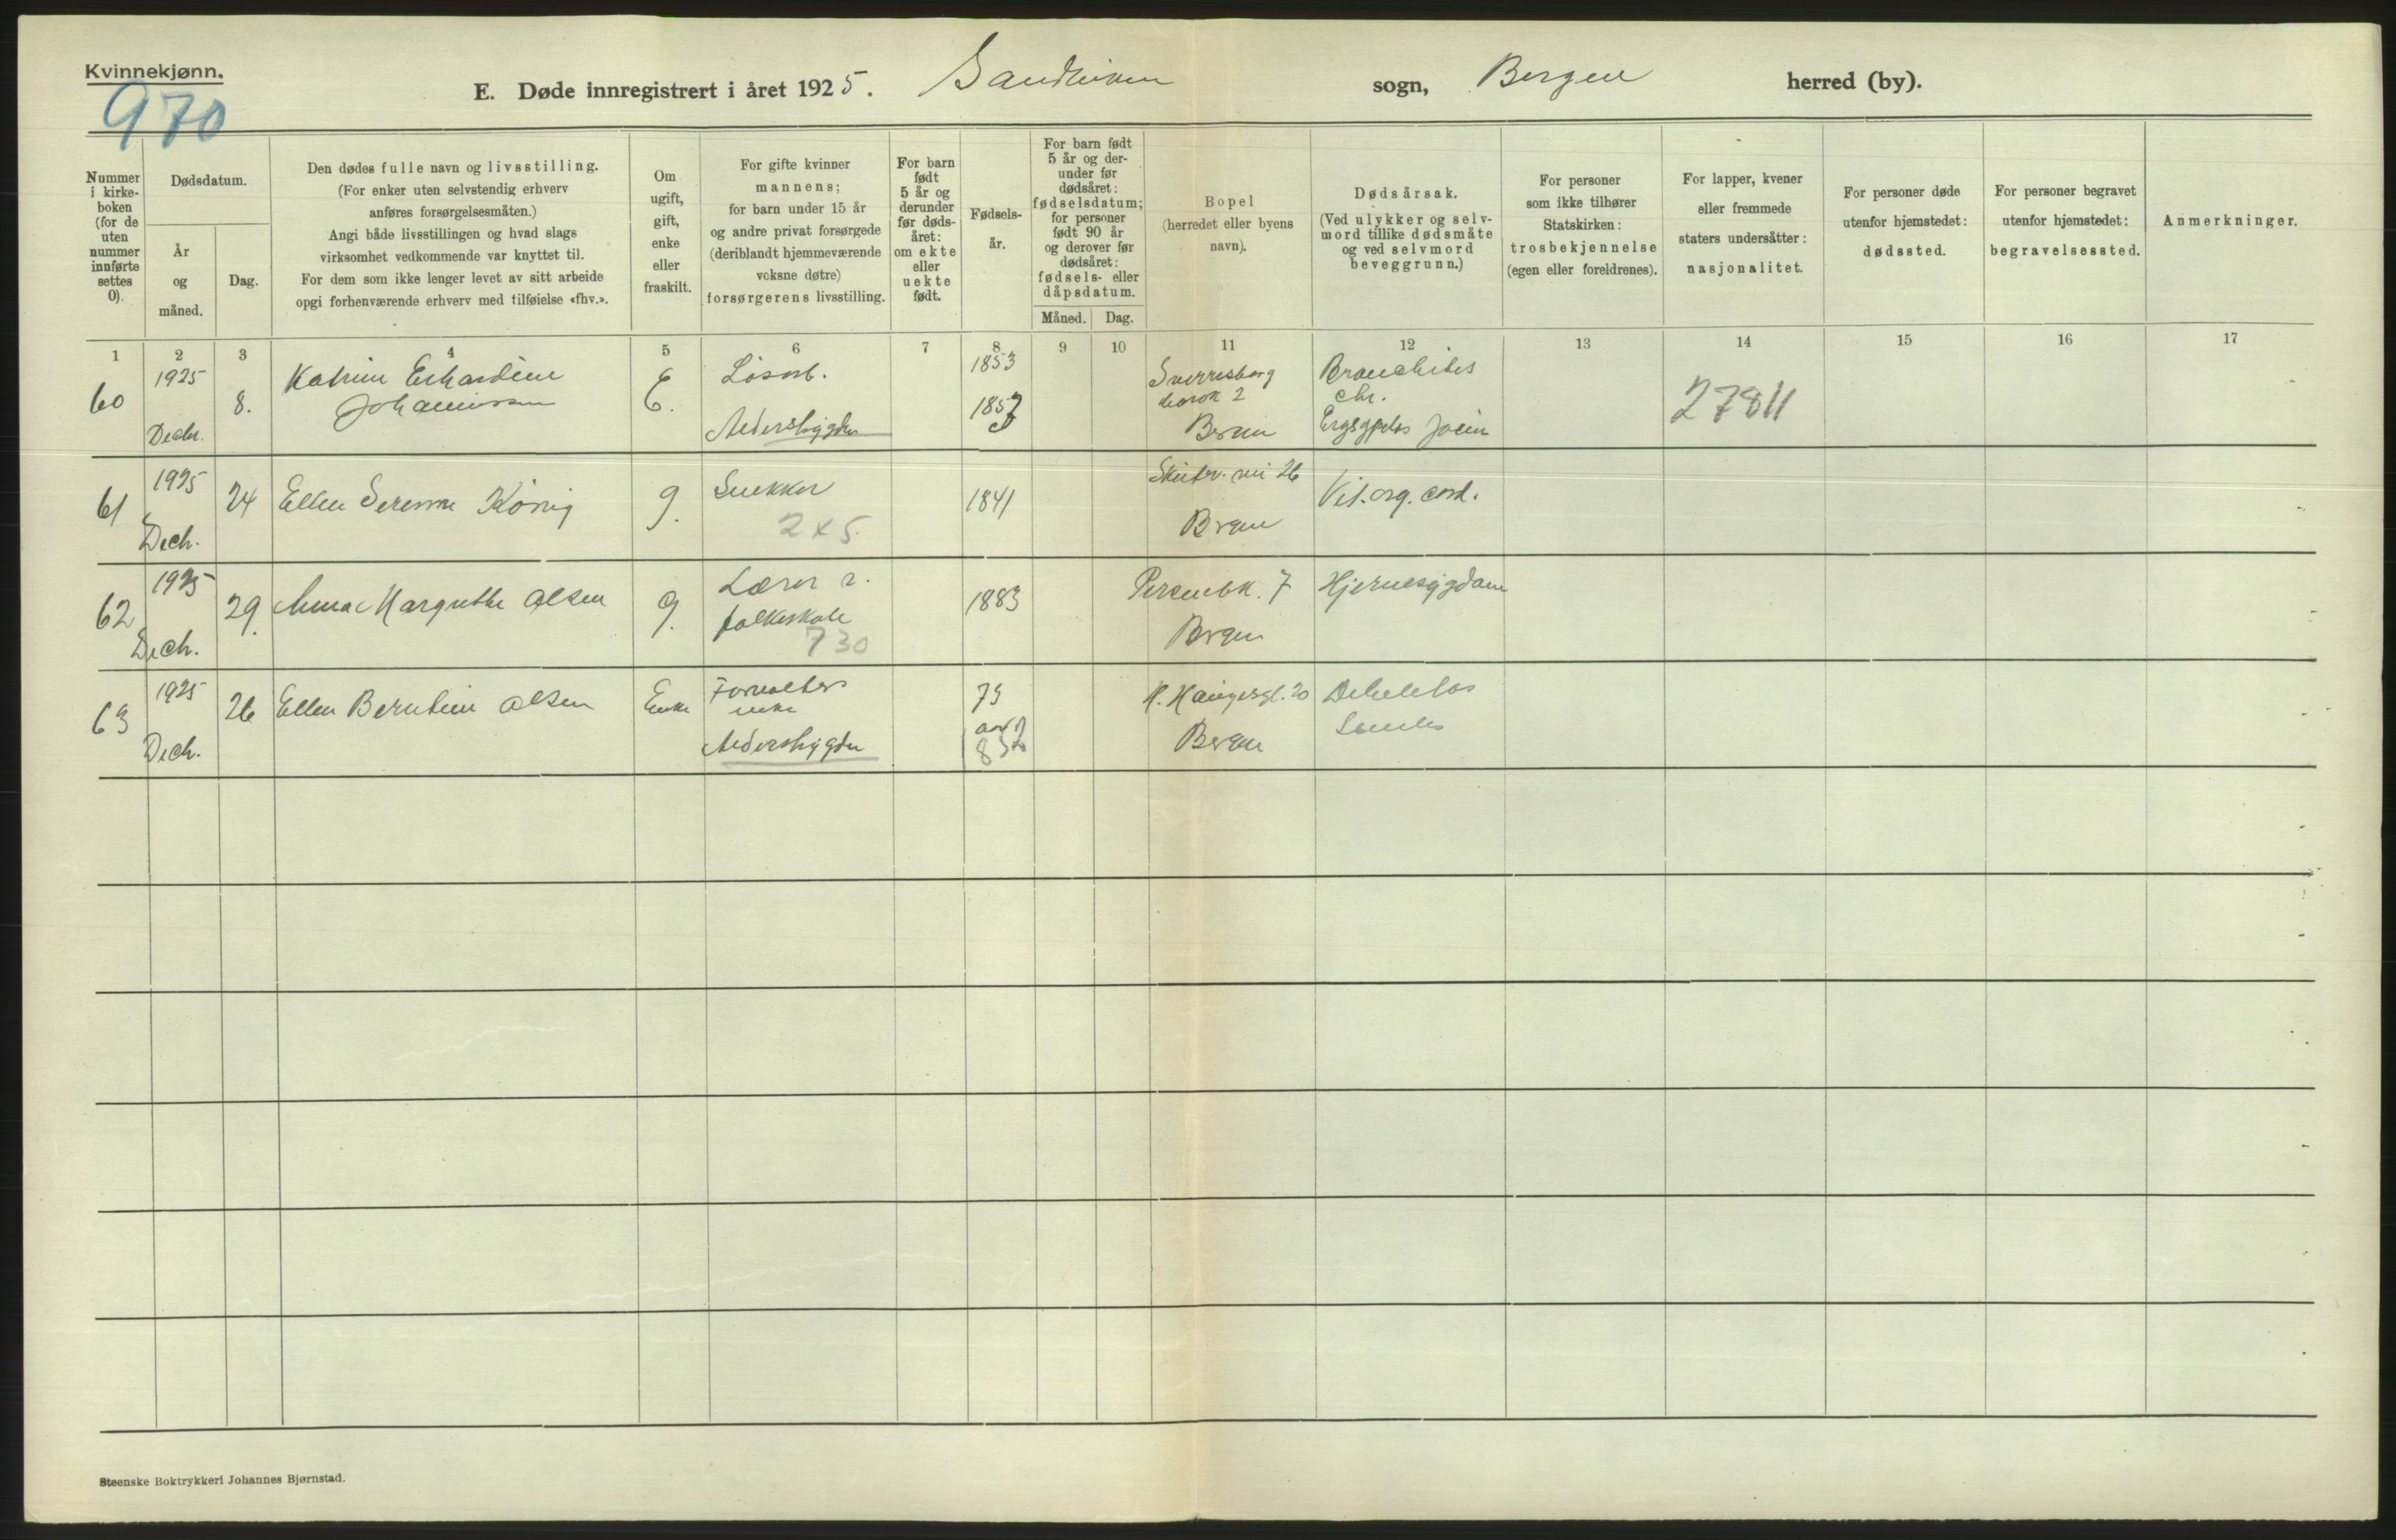 Kvinnekjønn.
970
E. Døde innregistrert i året 1925. Sandviken sogn, Bergen herred (by).
Nummer i kirke-boken (for de uten nummer innførte settes 0).
Dødsdatum.
År og måned.
Dag.
Den dødes fulle navn og livsstilling.
(For enker uten selvstendig erhverv
anføres forsørgelsesmåten.)
Angi både livsstillingen og hvad slags
virksomhet vedkommende var knyttet til.
For dem som ikke lenger levet av sitt arbeide
opgi forhenværende erhverv med tilføielse «fhv.».
Om ugift, gift, enke eller fraskilt.
For gifte kvinner
mannens;
for barn under 15 år
og andre privat forsørgede
(deriblandt hjemmeværende
voksne døtre)
forsørgerens livsstilling.
For barn født 5 år og derunder før døds-året: om ekte eller uekte født.
Fødsels-år.
For barn født
5 år og der-
under før
dødsåret:
fødselsdatum;
for personer
født 90 år
og derover før
dødsåret:
fødsels- eller
dåpsdatum.
Måned. Dag.
Bopel
(herredet eller byens
navn).
Dødsårsak.
(Ved ulykker og selv-
mord tillike dødsmåte
og ved selvmord
beveggrunn.)
For personer
som ikke tilhører
Statskirken:
trosbekjennelse
(egen eller foreldrenes).
For lapper, kvener
eller fremmede
staters undersåtter:
nasjonalitet.
For personer døde
utenfor hjemstedet:
dødssted.
For personer begravet
utenfor hjemstedet:
begravelsessted.
Anmerkninger.
1 2 3 4 5 6 7 8 9 10 11 12 13 14 15 16 17
60 1925 Decbr. 8. Johannessen E. Løsarb. Alderstrygden 1853 1852 Sverresborg 2 Bergen Bronchitis chr. 27811
61 1925 Dech. 24 Ellen König g. Snekker 2x5. 1841 26 Bergen Vit. org. cord.
62 1925 Dech. 29. Anna Margrethe Olsen g. Lærer v. folkeskole 730 1883 7 Bergen Hjernesygdom
63 1925 Dech. 26 Ellen Olsen Enke enke Alderstrygden 73 1852 20 Bergen
Steenske Boktrykkeri Johannes Bjørnstad.